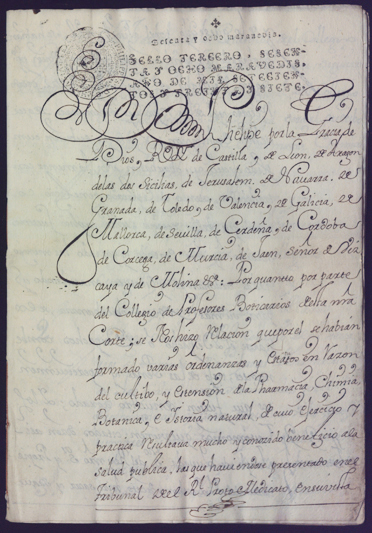 Sesenta y ocho maravedis.
SELLO TERCERO, SESEN-
TA Y OCHO MARAVEDIS,
AÑO DE MIL SETECIEN-
TOS Y TREINTA Y SIETE.
Dn Phelipe por la Gracia de
Dios, Rey de Castilla, de Leon, de Aragon
de las dos Sicilias, de Jerusalem, de Navarra, de
Granada, de Toledo, de Valencia, de Galicia, de
Mallorca, de Sevilla, de Cerdeña, de Cordoba
de Corcega, de Murcia, de Jaen, señor de Viz
caya y de Molina &a: Por quanto por parte
del Collegio de Profesores Boticarios de esta nra
Corte; se Nos hizo Relacion que por el se habian
formado varias ordenanzas y estattos en razon
del cultibo, y extension de la Pharmacia, Chimia
Botanica, e Istoria natural de cuio exercicio y
practica resultaria mucho y conozido beneficio a la
salud publica, las que haviendose presentado en el
Tribunal del Rl Proto Medicato, en su vista